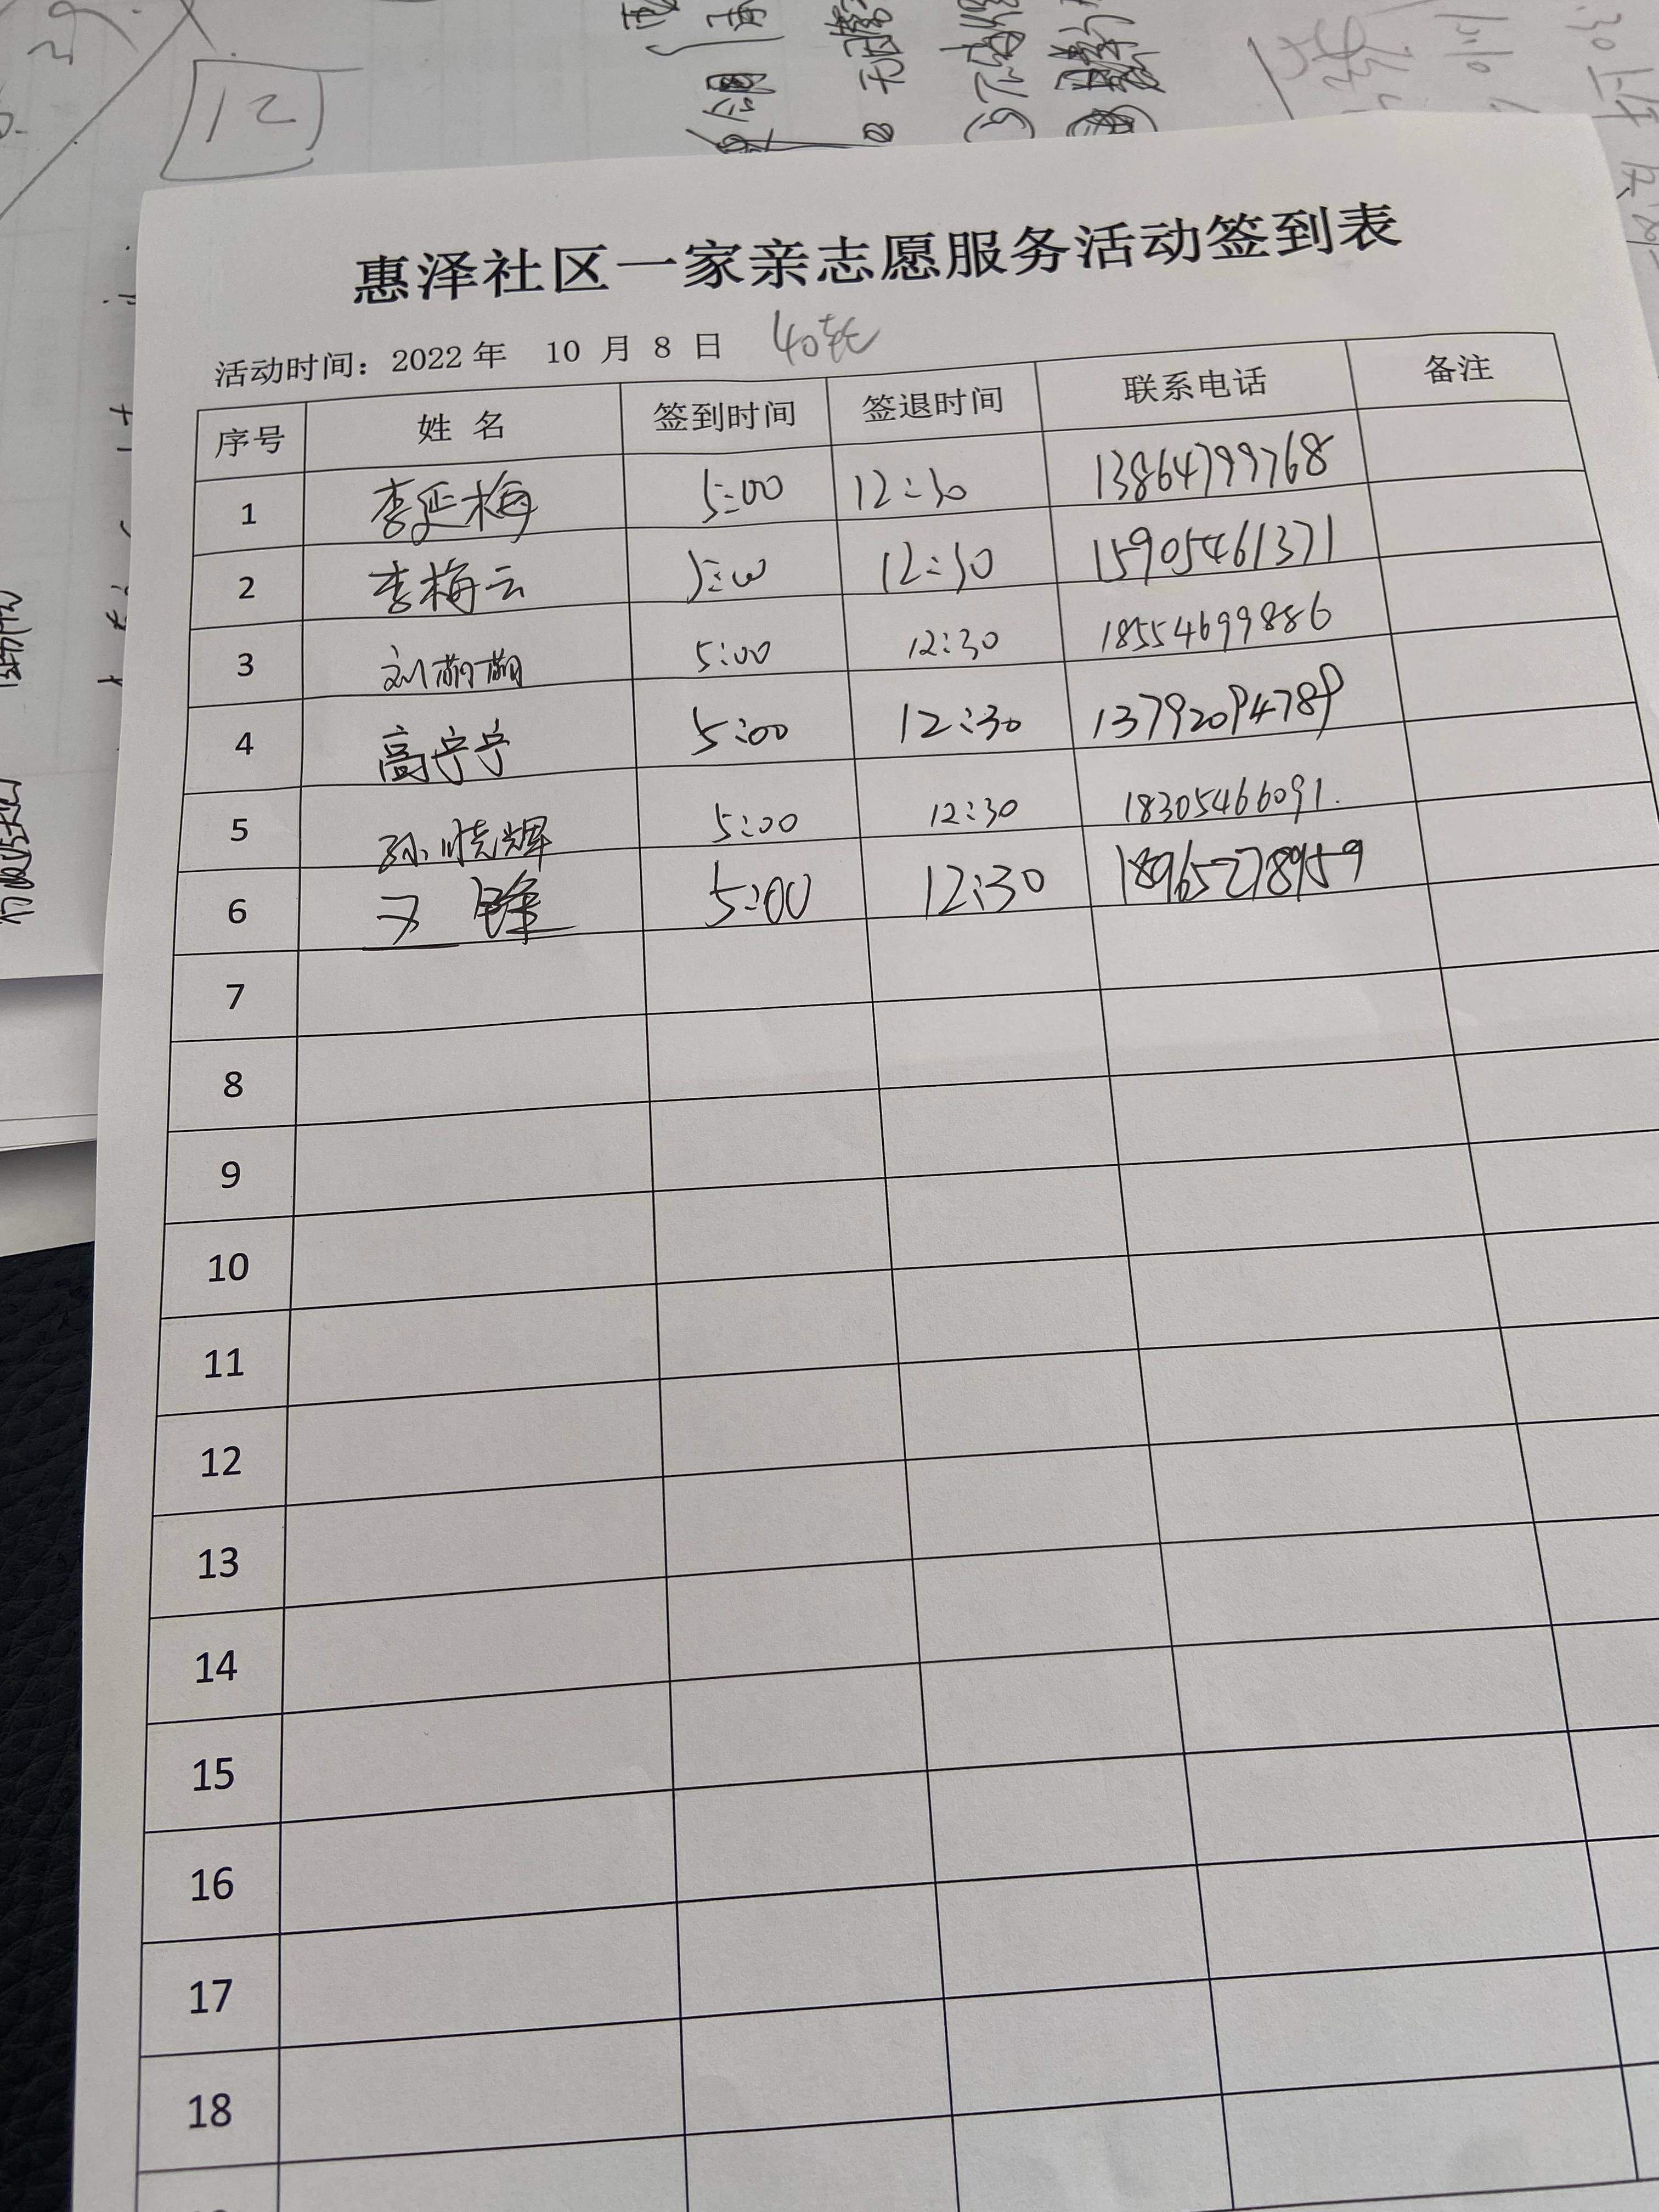 12
惠泽社区一家亲志愿服务活动签到表
活动时间：2022年 10 月 8 日
序号 姓 名 签到时间 签退时间 联系电话 备注
1 李延梅 5:00 12:30 13864799768
2 李梅云 5:00 12:30 15905461371
3 刘萌萌 5:00 12:30 18554699886
4 高宁宁 5:00 12:30 13792094789
5 孙晓辉 5:00 12:30 18305466091.
6 5:00 12:30 18965278959
7
8
9
10
11
12
13
14
15
16
17
18